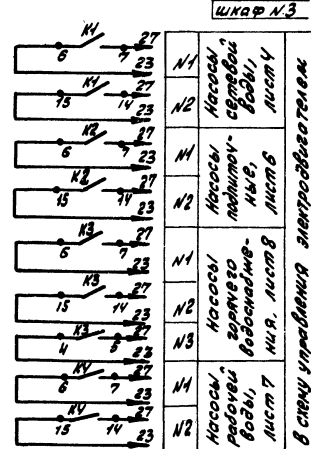 шкаф N.3
К1 27
6 7
23
К1 27
15 14
23
К2 27
6 7
23
К2 27
15 14
23
К3 27
6 7
23
К3 27
15 14
23
К3 27
4 5
23
К4 27
6 7
23
К4 27
15 14
23
N1
N2
Насосы
сетевой
воды,
лист 4
N1
N2
Насосы
подпиточ-
ные,
лист 6
N1
N2
N3
Насосы
горячего
водоснабже-
ния, лист 8
N1
N2
Насосы
рабочей
воды,
лист 7
в схему управления электродвигателем